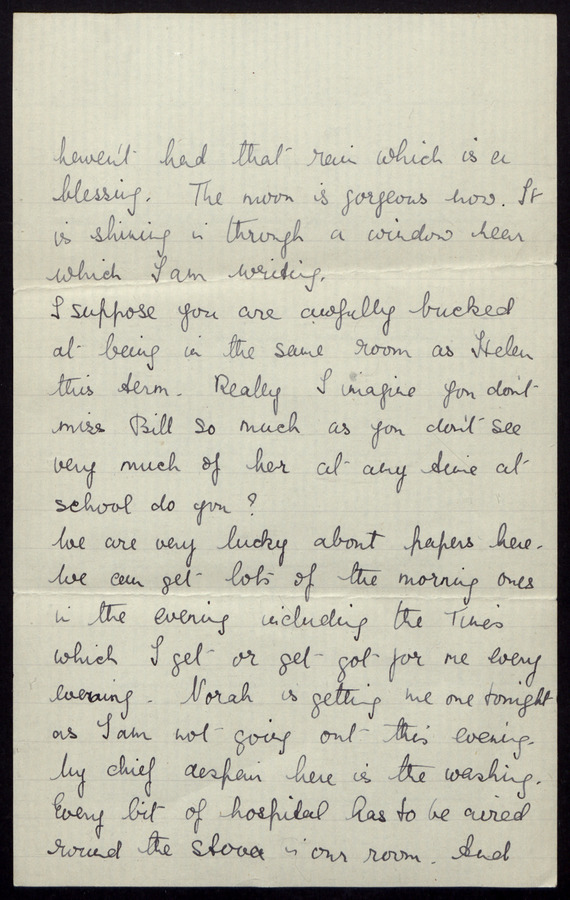 haven't had that rain which is a
blessing. The moon is gorgeous now. It
is shining in through a window near
which I am writing.
I suppose you are awfully bucked
at being in the same room as Helen
this term. Really I imagine you don't
miss Bill so much as you don't see
very much of her at any time at
school do you?
We are very lucky about papers here.
We can get lots of the morning ones
in the evening including the Times
which I get or get got for me every
evening. Norah is getting me one tonight
as I am not going out this evening.
My chief despair here is the washing.
Every bit of hospital has to be aired
round the stove in our room. And